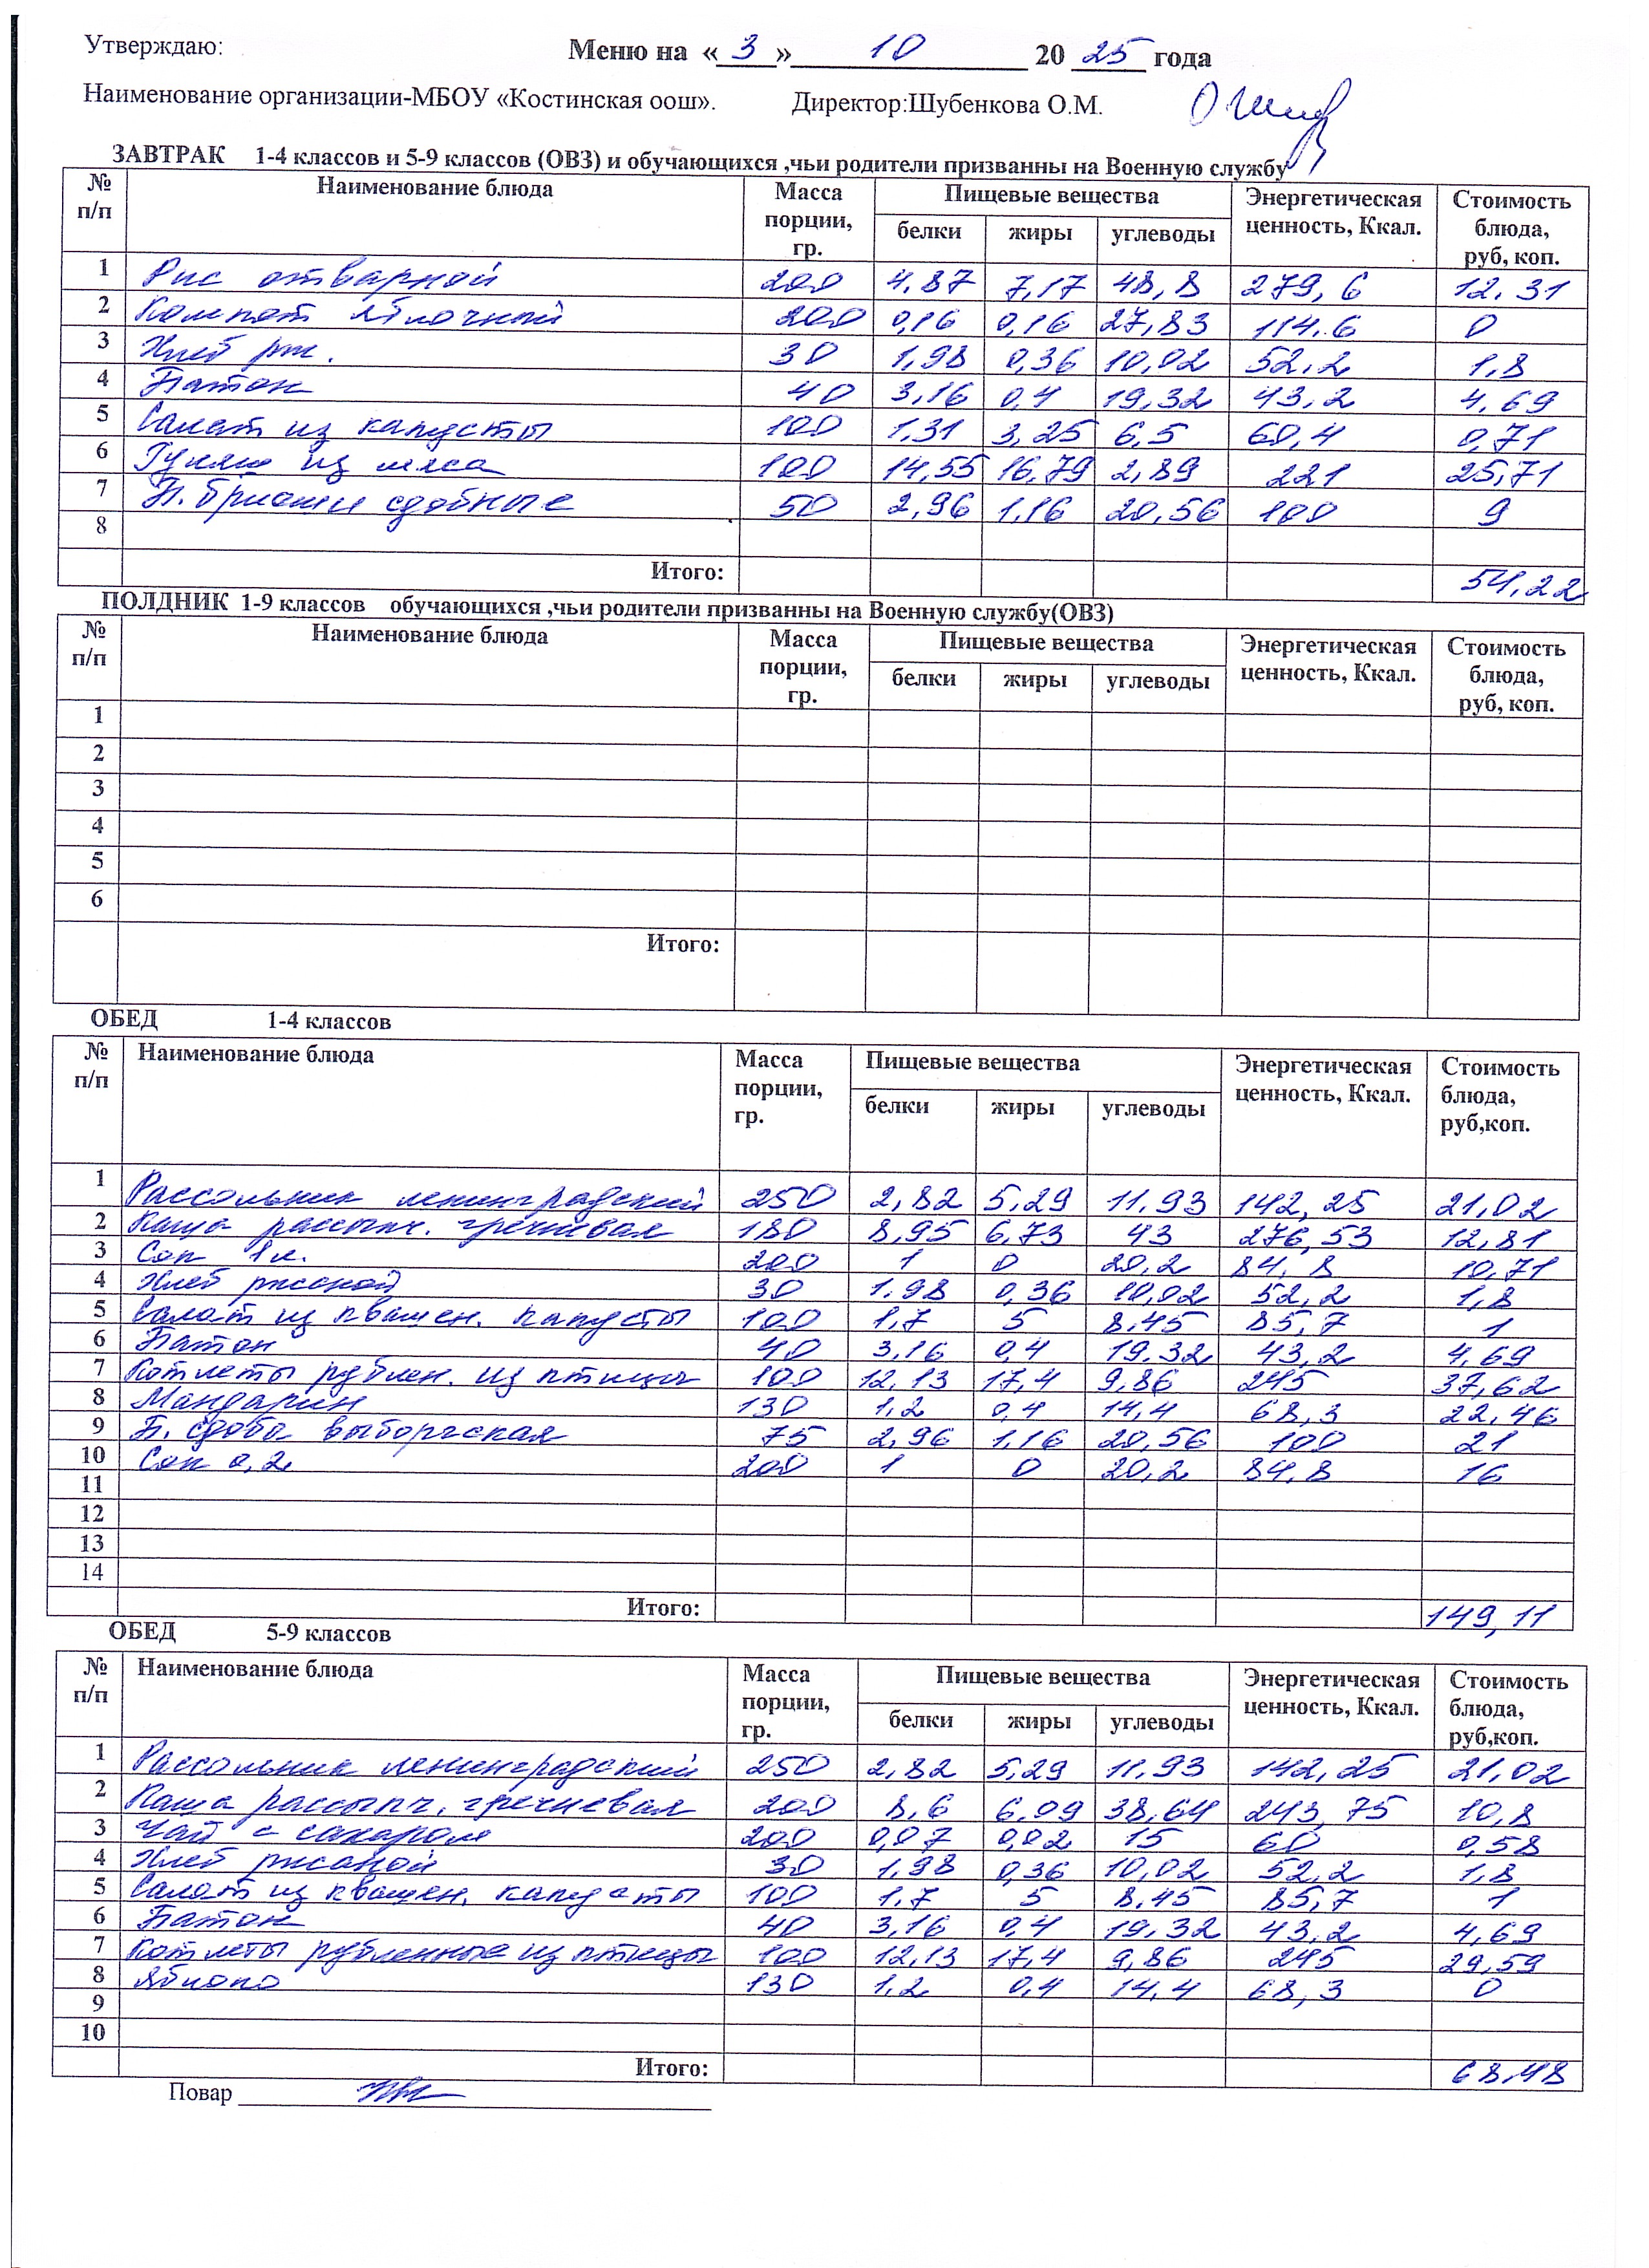 Утверждаю:
Меню на «3» 10 20 25 года
Наименование организации-МБОУ «Костинская оош». Директор:Шубенкова О.М.
ЗАВТРАК 1-4 классов и 5-9 классов (ОВЗ) и обучающихся ,чьи родители призванны на Военную службу
№ п/п Наименование блюда Масса порции, гр. Пищевые вещества Энергетическая ценность, Ккал. Стоимость блюда, руб, коп.
белки жиры углеводы
1 Рис отварной 200 4,87 7,17 48,8 279,6 12,31
2 Компот яблочный 200 0,16 0,16 27,83 114,6 0
3 Хлеб рж. 30 1,98 0,36 10,02 52,2 1,8
4 Батон 40 3,16 0,4 19,32 43,2 4,69
5 Салат из капусты 100 1,31 3,25 6,5 60,4 0,71
6 Гуляш из мяса 100 14,55 16,79 2,89 221 25,71
7 Б. бриоши сдобные 50 2,96 1,16 20,56 100 9
8
Итого: 54,22
ПОЛДНИК 1-9 классов обучающихся ,чьи родители призванны на Военную службу(ОВЗ)
№ п/п Наименование блюда Масса порции, гр. Пищевые вещества Энергетическая ценность, Ккал. Стоимость блюда, руб, коп.
белки жиры углеводы
1
2
3
4
5
6
Итого:
ОБЕД 1-4 классов
№ п/п Наименование блюда Масса порции, гр. Пищевые вещества Энергетическая ценность, Ккал. Стоимость блюда, руб,коп.
белки жиры углеводы
1 Рассольник ленинградский 250 2,82 5,29 11,93 142,25 21,02
2 Каша рассыпч. гречневая 180 8,95 6,73 43 276,53 12,81
3 Сок 1л. 200 1 0 20,2 84,8 10,71
4 Хлеб ржаной 30 1,98 0,36 10,02 52,2 1,8
5 Салат из квашен. капусты 100 1,7 5 8,45 85,7 1
6 Батон 40 3,16 0,4 19,32 43,2 4,69
7 Котлеты рублен. из птицы 100 12,13 17,4 9,86 245 37,62
8 Мандарин 130 1,2 0,4 14,4 68,3 22,46
9 Б. сдоба выборгская 75 2,96 1,16 20,56 100 21
10 Сок 0,2 200 1 0 20,2 84,8 16
11
12
13
14
Итого: 149,11
ОБЕД 5-9 классов
№ п/п Наименование блюда Масса порции, гр. Пищевые вещества Энергетическая ценность, Ккал. Стоимость блюда, руб,коп.
белки жиры углеводы
1 Рассольник ленинградский 250 2,82 5,29 11,93 142,25 21,02
2 Каша рассыпч. гречневая 200 8,6 6,09 38,64 243,75 10,8
3 Чай с сахаром 200 0,07 0,02 15 60 0,58
4 Хлеб ржаной 30 1,98 0,36 10,02 52,2 1,8
5 Салат из квашен. капусты 100 1,7 5 8,45 85,7 1
6 Батон 40 3,16 0,4 19,32 43,2 4,69
7 Котлеты рубленные из птицы 100 12,13 17,4 9,86 245 29,59
8 Яблоко 130 1,2 0,4 14,4 68,3 0
9
10
Итого: 68,48
Повар